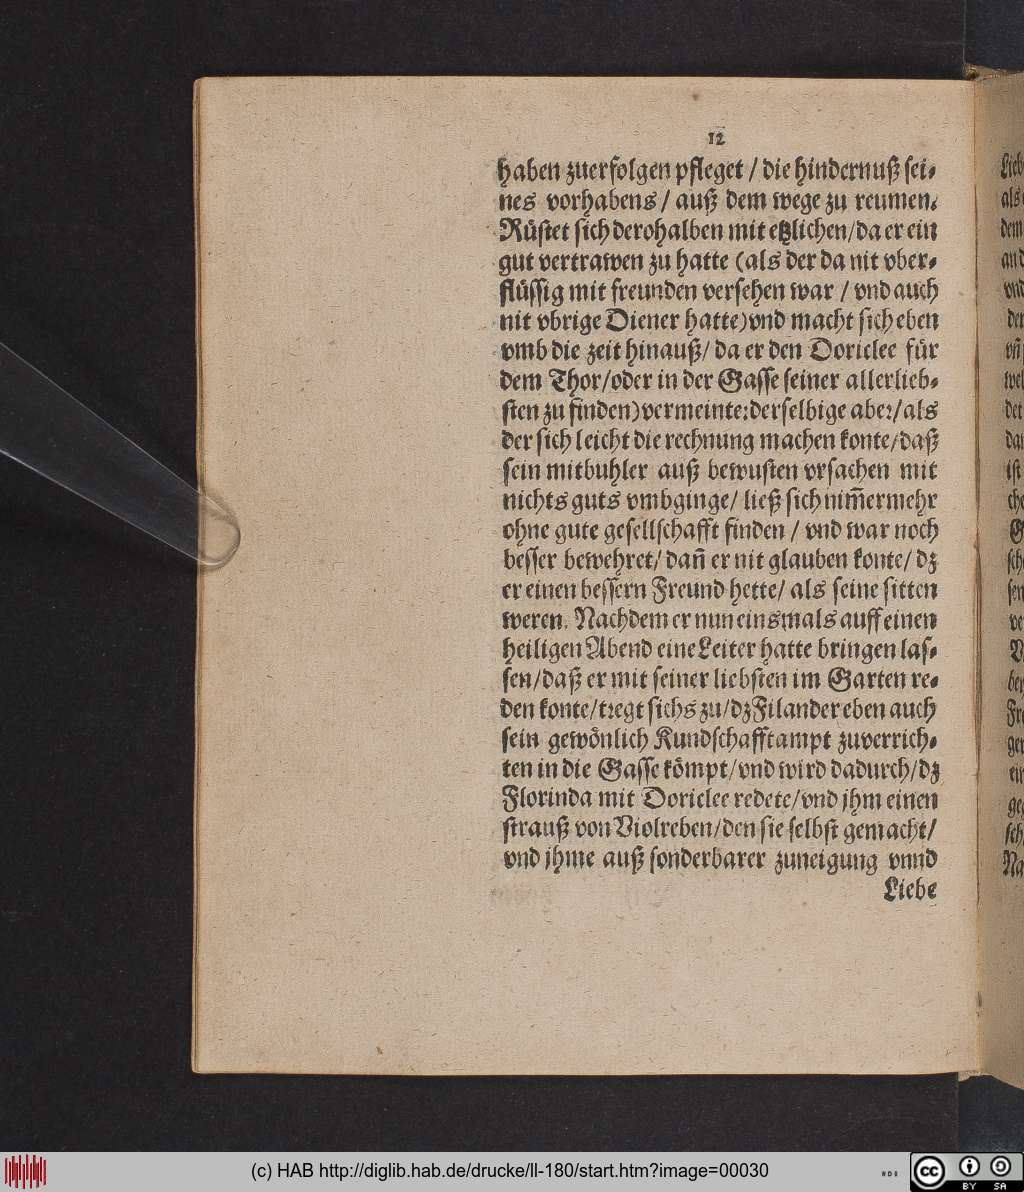 12
haben zuerfolgen pfleget / die hindernuß sei-
nes vorhabens / auß dem wege zu reumen.
Rüstet sich derohalben mit etzlichen/da er ein
gut vertrawen zu hatte (als der da nit vber-
flüssig mit freunden versehen war / vnd auch
nit vbrige Diener hatte)vnd macht sich eben
vmb die zeit hinauß/ da er den Doriclee für
dem Thor/oder in der Gasse seiner allerlieb-
sten zu finden)vermeinte:derselbige aber/als
der sich leicht die rechnung machen konte/daß
sein mitbuhler auß bewusten vrsachen mit
nichts guts vmbginge/ ließ sich nim̃ermehr
ohne gute gesellschafft finden / vnd war noch
besser bewehret/ dañ er nit glauben konte/ dz
er einen bessern Freund hette/ als seine sitten
weren. Nachdem er nun einsmals auff einen
heiligen Abend eine Leiter hatte bringen las-
sen/daß er mit seiner liebsten im Garten re-
den konte/tregt sichs zu/dz Filander eben auch
sein gewönlich Kundschafftampt zuverrich-
ten in die Gasse kömpt/vnd wird dadurch/dz
Florinda mit Doriclee redete/vnd jhm einen
strauß von Violreben/den sie selbst gemacht/
vnd jhme auß sonderbarer zuneigung vnnd
Liebe
(c) HAB http://diglib.hab.de/drucke/ll-180/start.htm?image=00030
cc BY SA